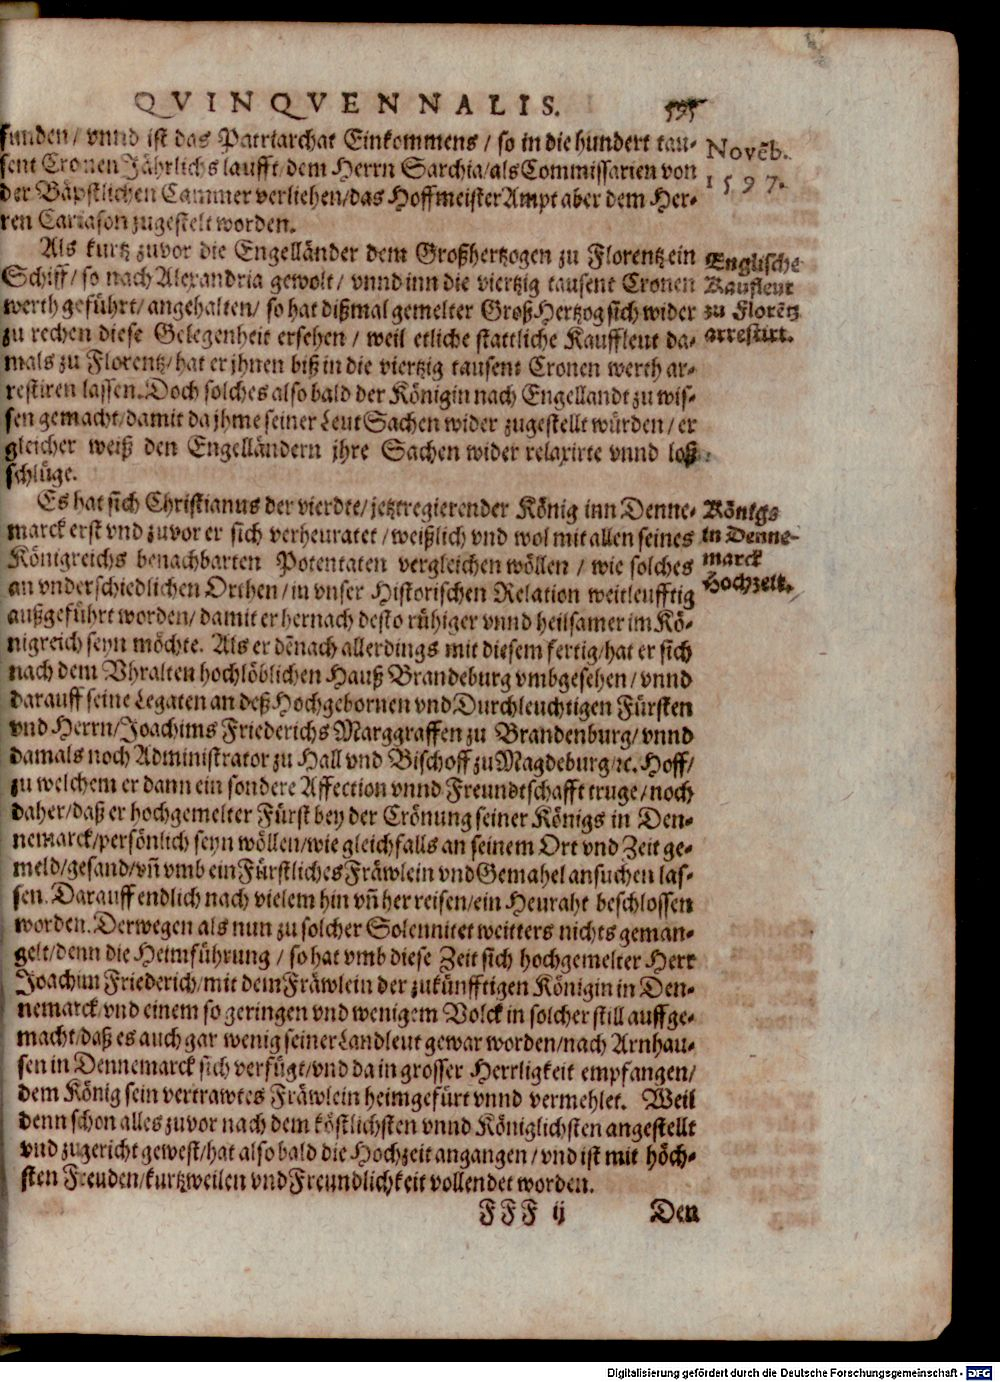 QVINQVENNALIS. 595
funden/ vnnd ist das Patriarchat Einkommens / so in die hundert tau-
sent Cronen Jährlichs laufft/ dem Herrn Sarchia/ als Commissarien von
der Bäpstlichen Cammer verliehen/ das Hoffmeister Ampt aber dem Her-
ren Cariason zugestelt worden.
Novēb.
1597.
Als kurtz zuvor die Engelländer dem Großhertzogen zu Florentz ein
Schiff/ so nach Alexandria gewolt/ vnnd inn die viertzig tausent Cronen
werth geführt/ angehalten/ so hat dißmal gemelter Groß Hertzog sich wider
zu rechen diese Gelegenheit ersehen / weil etliche stattliche Kauffleut da-
mals zu Florentz/ hat er jhnen biß in die viertzig tausent Cronen werth ar-
restiren lassen. Doch solches also bald der Königin nach Engellandt zu wis-
sen gemacht/ damit da jhme seiner Leut Sachen wider zugestellt würden / er
gleicher weiß den Engelländern jhre Sachen wider relaxirte vnnd loß
schlüge.
Englische
Kaufleut
zu Florētz
arrestirt.
Es hat sich Christianus der vierdte/ jetztregierender König inn Denne-
marck erst vnd zuvor er sich verheuratet / weißlich vnd wol mit allen seines
Königreichs benachbarten Potentaten vergleichen wöllen / wie solches
an vnderschiedlichen Orthen/ in vnser Historischen Relation weitleufftig
außgeführt worden/ damit er hernach desto rühiger vnnd heilsamer im Kö-
nigreich seyn möchte. Als er dēnach allerdings mit diesem fertig/ hat er sich
nach dem Vhralten hochlöblichen Hauß Brandeburg vmbgesehen/ vnnd
darauff seine Legaten an deß Hochgebornen vnd Durchleuchtigen Fürsten
vnd Herrn/ Joachims Friederichs Marggraffen zu Brandenburg/ vnnd
damals noch Administrator zu Hall vnd Bischoff zu Magdeburg/ ꝛc. Hoff/
zu welchem er dann ein sondere Affection vnnd Freundtschafft truge/ noch
daher/ daß er hochgemelter Fürst bey der Crönung seiner Königs in Den-
nemarck/ persönlich seyn wöllen/ wie gleichfalls an seinem Ort vnd Zeit ge-
meld/ gesand/ vñ vmb ein Fürstliches Fräwlein vnd Gemahel ansuchen las-
sen. Darauff endlich nach vielem hin vñ her reisen/ ein Heuraht beschlossen
worden. Derwegen als nun zu solcher Solennitet weitters nichts geman-
gelt/ denn die Heimführung / so hat vmb diese Zeit sich hochgemelter Herr
Joachim Friederich/ mit dem Fräwlein der zukünfftigen Königin in Den-
nemarck/ vnd einem so geringen vnd wenigem Volck in solcher still auffge-
macht/ daß es auch gar wenig seiner Landleut gewar worden/ nach Arnhau-
sen in Dennemarck sich verfügt/ vnd da in grosser Herrligkeit empfangen/
dem König sein vertrawtes Fräwlein heimgefürt vnnd vermehlet. Weil
denn schon alles zuvor nach dem köstlichsten vnnd Königlichsten angestellt
vnd zugericht gewest/ hat also bald die Hochzeit angangen / vnd ist mit höch-
sten Freuden/ kurtzweilen vnd Freundlichkeit vollendet worden.
Königs
in Denne-
marck
Hochzeit.
FFF ij Den
Digitalisierung gefördert durch die Deutsche Forschungsgemeinschaft - DFG